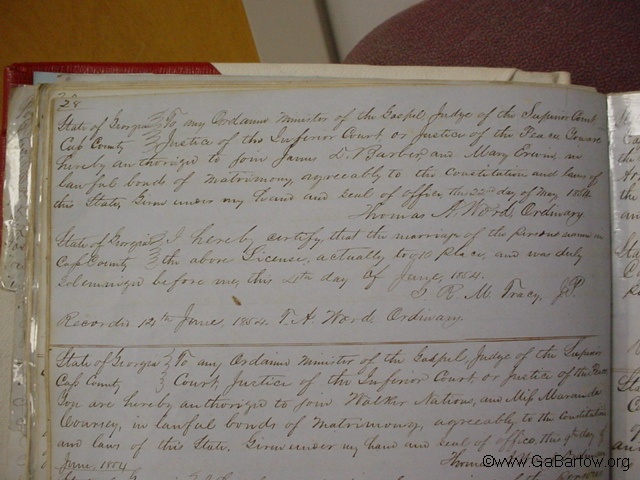 28
State of Georgia } To any Ordained Minister of the Gospel, Judge of the Superior Court
Cass County } Justice of the Inferior Court, or Justice of the Peace, You are
hereby authorized to join James D. Barber, and Mary Erwin, in
lawful bonds of Matrimony, agreeably to the Constitution and laws of
this State, Given under my hand and seal of office, this 22nd day of May 1854.
Thomas A. Word, Ordinary
State of Georgia } I hereby certify, that the marriage of the persons named in
Cass County } the above License, actually took place, and was duly
Solemnized before me, this 4th day of June, 1854.
R. M. Tracy, J.P.
Recorded 12th June, 1854. T. A. Word Ordinary.
State of Georgia } To any Ordained Minister of the Gospel, Judge of the Superior
Cass County } Court, Justice of the Inferior Court, or Justice of the Peace
You are hereby authorized to join Walker Nations, and Miss Maranda
Coursey, in lawful bonds of Matrimony, agreeably to the Constitution
and laws of this State. Given under my hand and seal of office, this 9th day of
June, 1854 Thomas
©www.GaBartow.org